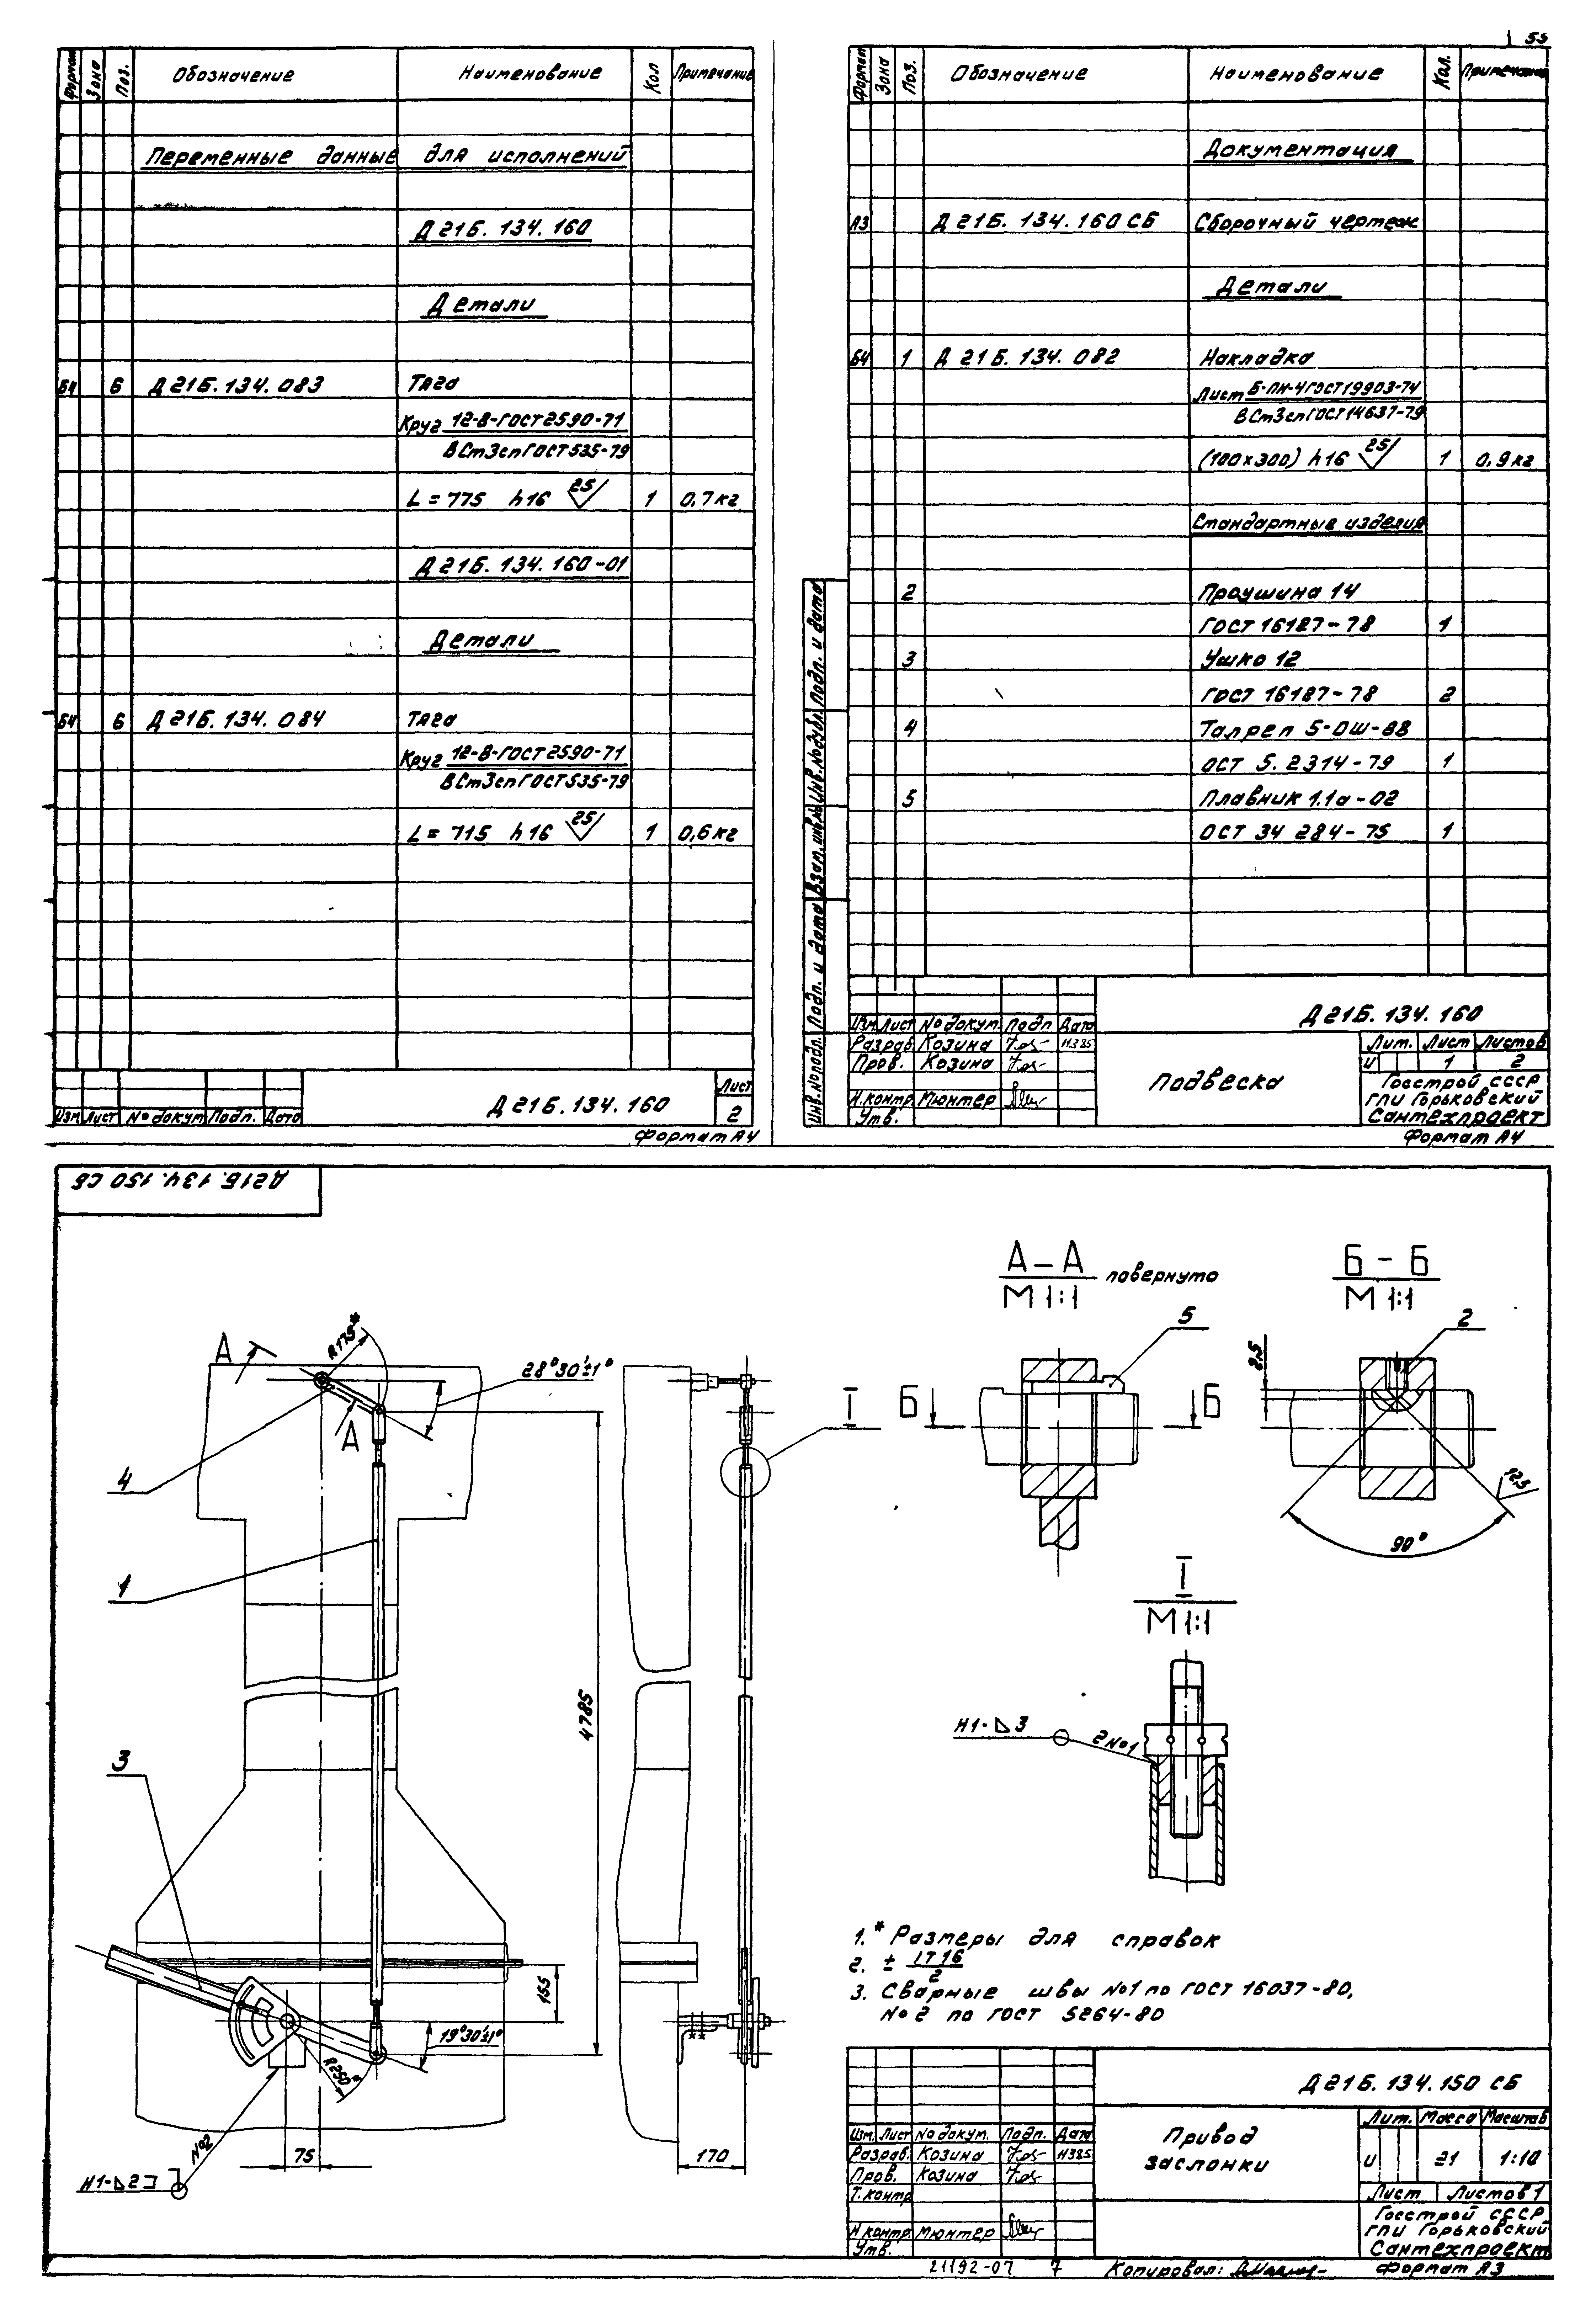 55
Формат Зона Поз. Обозначение Наименование Кол Примечание
Переменные данные для исполнений
Д21Б.134.160
Детали
Б4 6 Д21Б.134.083 Тяга
Круг 12-В-ГОСТ2590-71
ВСт3спГОСТ535-79
L=775 h16 25 1 0,7кг
Д21Б.134.160-01
Детали
Б4 6 Д21Б.134.084 Тяга
Круг 12-В-ГОСТ2590-71
ВСт3спГОСТ535-79
L=715 h16 25 1 0,6кг
Изм. Лист № докум. Подп. Дата
Д21Б.134.160
Лист
2
Формат А4
Формат Зона Поз. Обозначение Наименование Кол. Примечание
Документация
А3 Д21Б.134.160 СБ Сборочный чертеж
Детали
Б4 1 Д21Б.134.082 Накладка
Лист Б-ПН-4ГОСТ19903-74
ВСт3спГОСТ14637-79
(100х300) h16 25 1 0,9кг
Стандартные изделия
2 Проушина 14
ГОСТ 16127-78 1
3 Ушко 12
ГОСТ 16127-78 2
4 Талреп 5-ОШ-88
ОСТ 5.2314-79 1
5 Плавник 1.1а-02
ОСТ 34 284-75 1
Инв.№подл. Подп. и дата Взам.инв.№ Инв.№дубл. Подп. и дата
Изм. Лист № докум. Подп Дата
Разраб. Козина 11.385
Пров. Козина
Н.контр. Мюнтер
Утв.
Д21Б.134.160
Подвеска
Лит. Лист Листов
И 1 2
Госстрой СССР
ГПИ Горьковский
Сантехпроект
Формат А4
Д21Б.134.150 СБ
А
R175*
28°30'±1°
А
4
1
3
4785
155
19°30'±1°
R250*
№2
75
Н1-⊿2
170
I
А-А повернуто
М1:1
5
Б Б
Б-Б
М1:1
2
2,5
12,5
90°
I
М1:1
Н1-⊿3
2№1
1.* Размеры для справок
2. ± IT16/2
3. Сварные швы №1 по ГОСТ 16037-80,
№2 по ГОСТ 5264-80
Изм. Лист № докум. Подп. Дата
Разраб. Козина 11.385
Пров. Козина
Т.контр
Н.контр Мюнтер
Утв.
Д21Б.134.150 СБ
Привод
заслонки
Лит. Масса Масштаб
И 21 1:10
Лист Листов 1
Госстрой СССР
ГПИ Горьковский
Сантехпроект
21192-07 7 Копировал: Формат А3